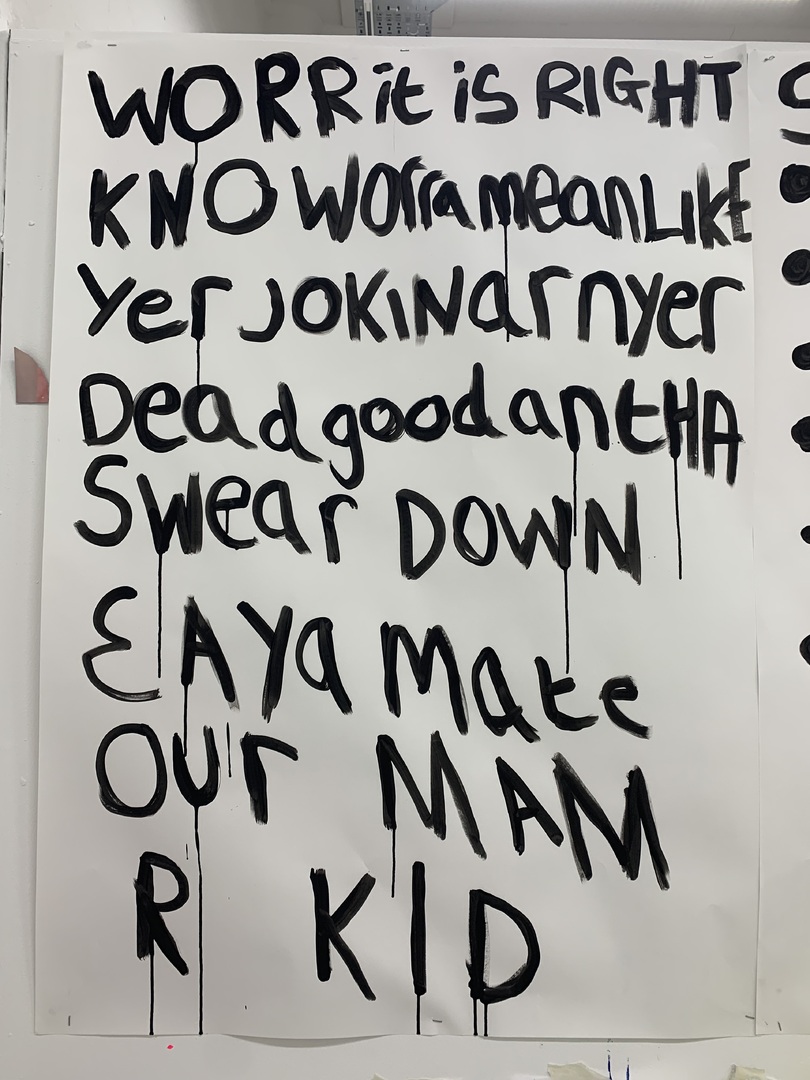 WORR it is RIGHT
KNO WOrra meanLIKE
Yer JOKINarnyer
Dead good antHA
Swear DOWN
EAYa Mate
OUr MAN
R KID